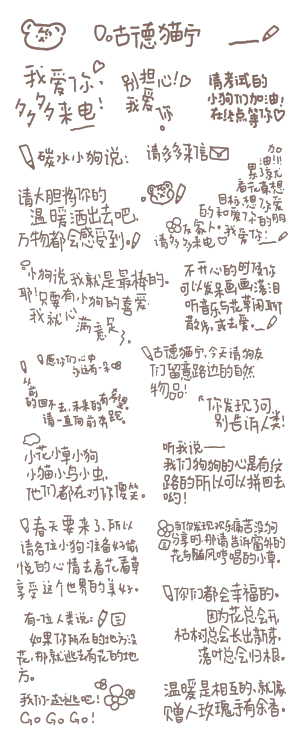 咕德猫宁
我爱你，
多多来电！
别担心！
我爱
你。
请考试的
小狗们加油！
在终点等你
碳水小狗说：
请多多来信
请大胆将你的
温暖洒出去吧，
万物都会感受到。
加
油!!!
累了就
看花看想
目标，想你爱
的和爱你的朋
友家人。
请多多来电 我爱你！
小狗说我就是最棒的。
耶！只要有小狗的喜爱
我就心
满意足
了。
不开心的时候你
可以发呆画画落泪
听音乐与花草闲聊
散步，或去爱。
愿你们心中
永远有一朵
从
前
的回不去，未来的有希望
请一直向前奔跑。
咕德猫宁，今天请狗友
们留意路边的自然
物品！
你发现了可
别告诉人类！
小花小草小狗
小猫小鸟小虫，
他们都在对你傻笑。
听我说——
我们狗狗的心是有纹
路的所以可以拼回去
哟！
春天要来了，所以
请各位小狗准备好愉
悦的心情去看花看草
享受这个世界的美好。
当你发现欢乐痛苦没狗
分享时，那请告诉窗外的
花与随风哼唱的小草。
有一位人类说：
如果你所在的地方没
花，那就逃去有花的地
方。
我们一起逃吧！
GO GO GO！
你们都会幸福的。
因为花总会开，
枯树总会长出新芽，
落叶总会归根。
温暖是相互的，就像
赠人玫瑰手有余香。